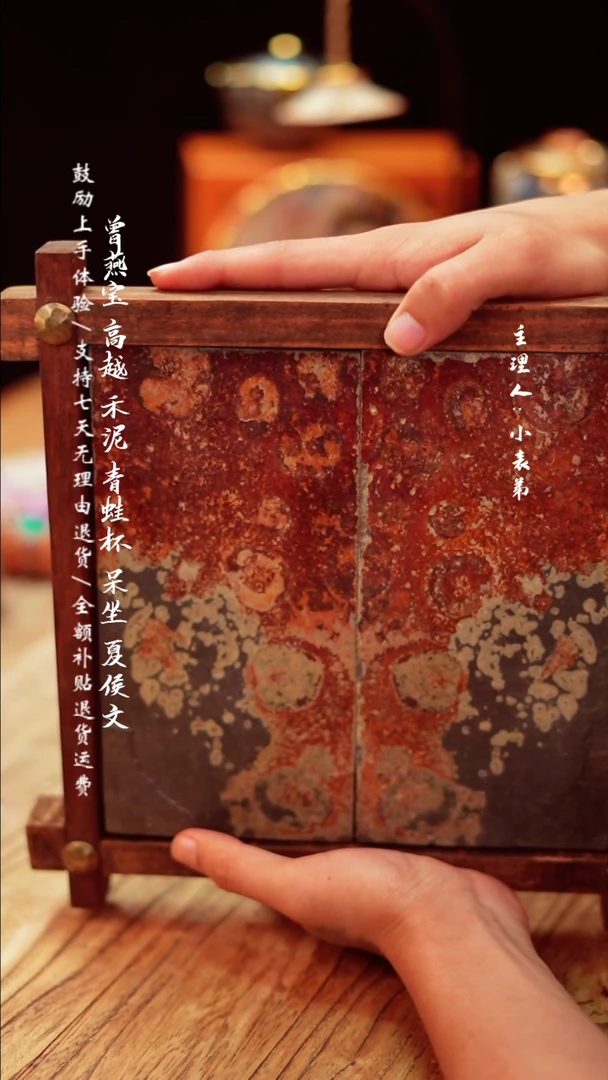 主理人：小表弟
曾燕宝 高越 禾泥 青蛙杯 呆坐 夏侯文
鼓励上手体验/支持七天无理由退货/全额补贴退货运费